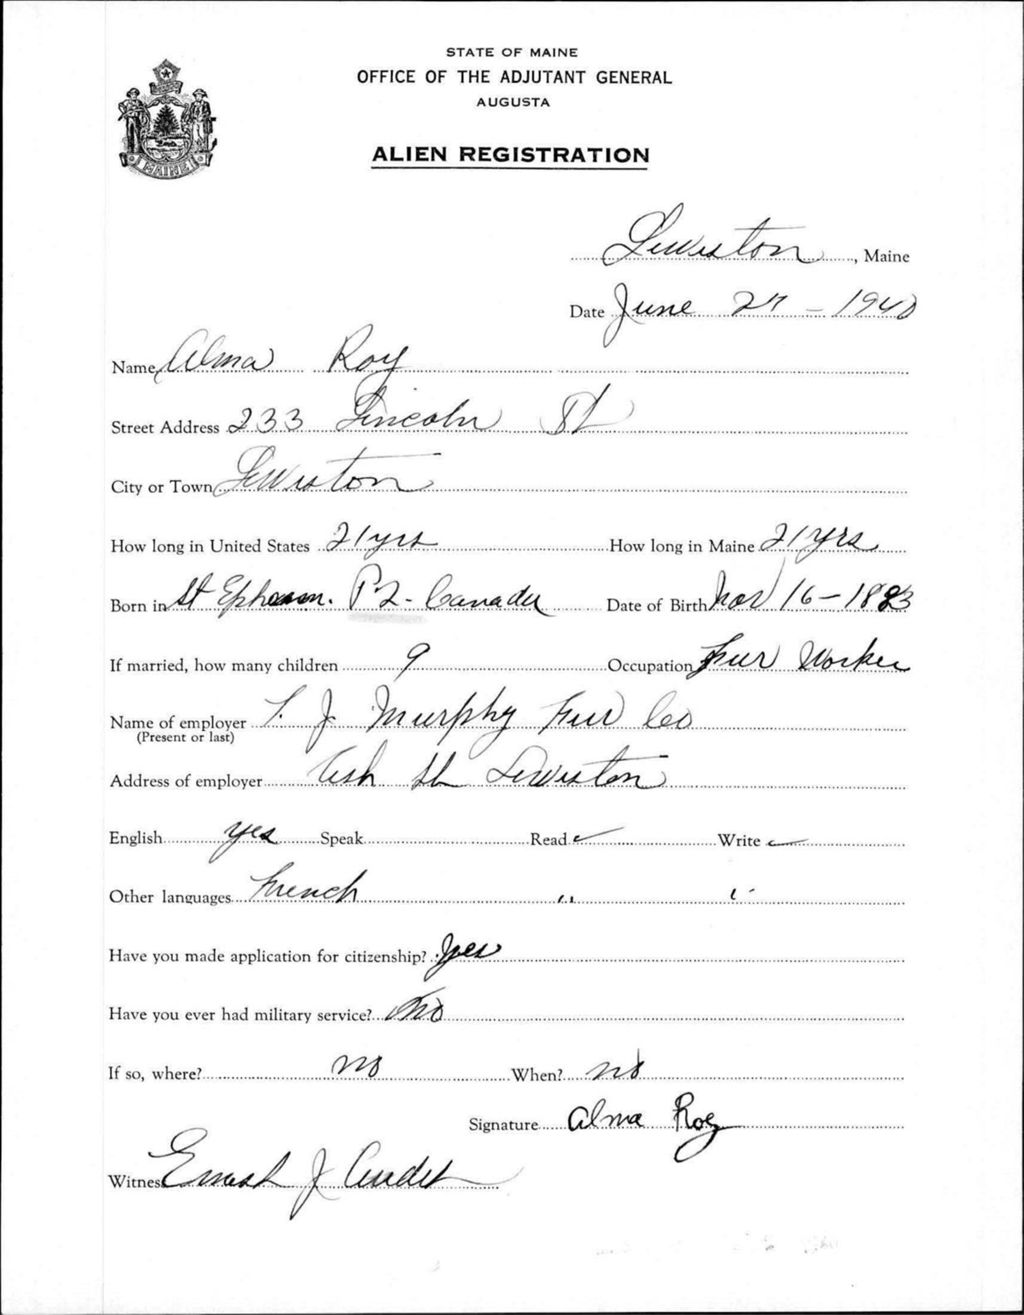 STATE OF MAINE
OFFICE OF THE ADJUTANT GENERAL
AUGUSTA
ALIEN REGISTRATION
MAINE
Lewiston, Maine
Date June 27 - 1940
Name Alma Roy
Street Address 233 Lincoln St
City or Town Lewiston
How long in United States 21 yrs How long in Maine 21 yrs
Born in St Ephrem. P2- Canada Date of Birth Nov 16-1883
If married, how many children 9 Occupation Fur Worker
Name of employer T. J Murphy Fur Co
(Present or last)
Address of employer Ash St Lewiston
English yes Speak Read ✓ Write ✓
Other languages French " "
Have you made application for citizenship? Yes
Have you ever had military service? No
If so, where? no When? no
Signature Alma Roy
Witness Ernest J Audet